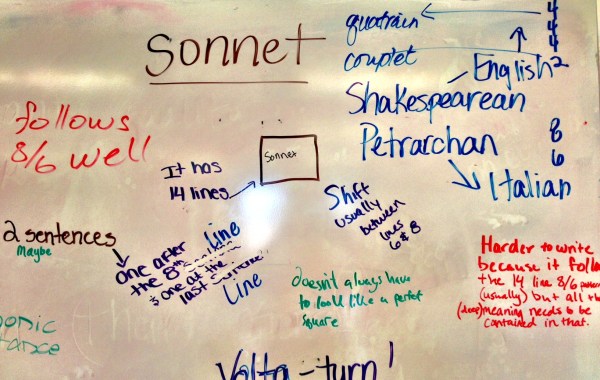 Sonnet
quatrain
couplet
4
4
4
English 2
Shakespearean
Petrarchan
8
6
Italian
follows
8/6 well
It has
14 lines
Sonnet
Shift
usually
between
lines
6 & 8
2 sentences
Maybe
one after
the 8th Line
& one at the
last
Line
doesn't always have
to look like a perfect
square
Harder to write
because it
the 14 line 8/6
(usually) but all
(deep) meaning needs to be
contained in that.
Volta - turn!